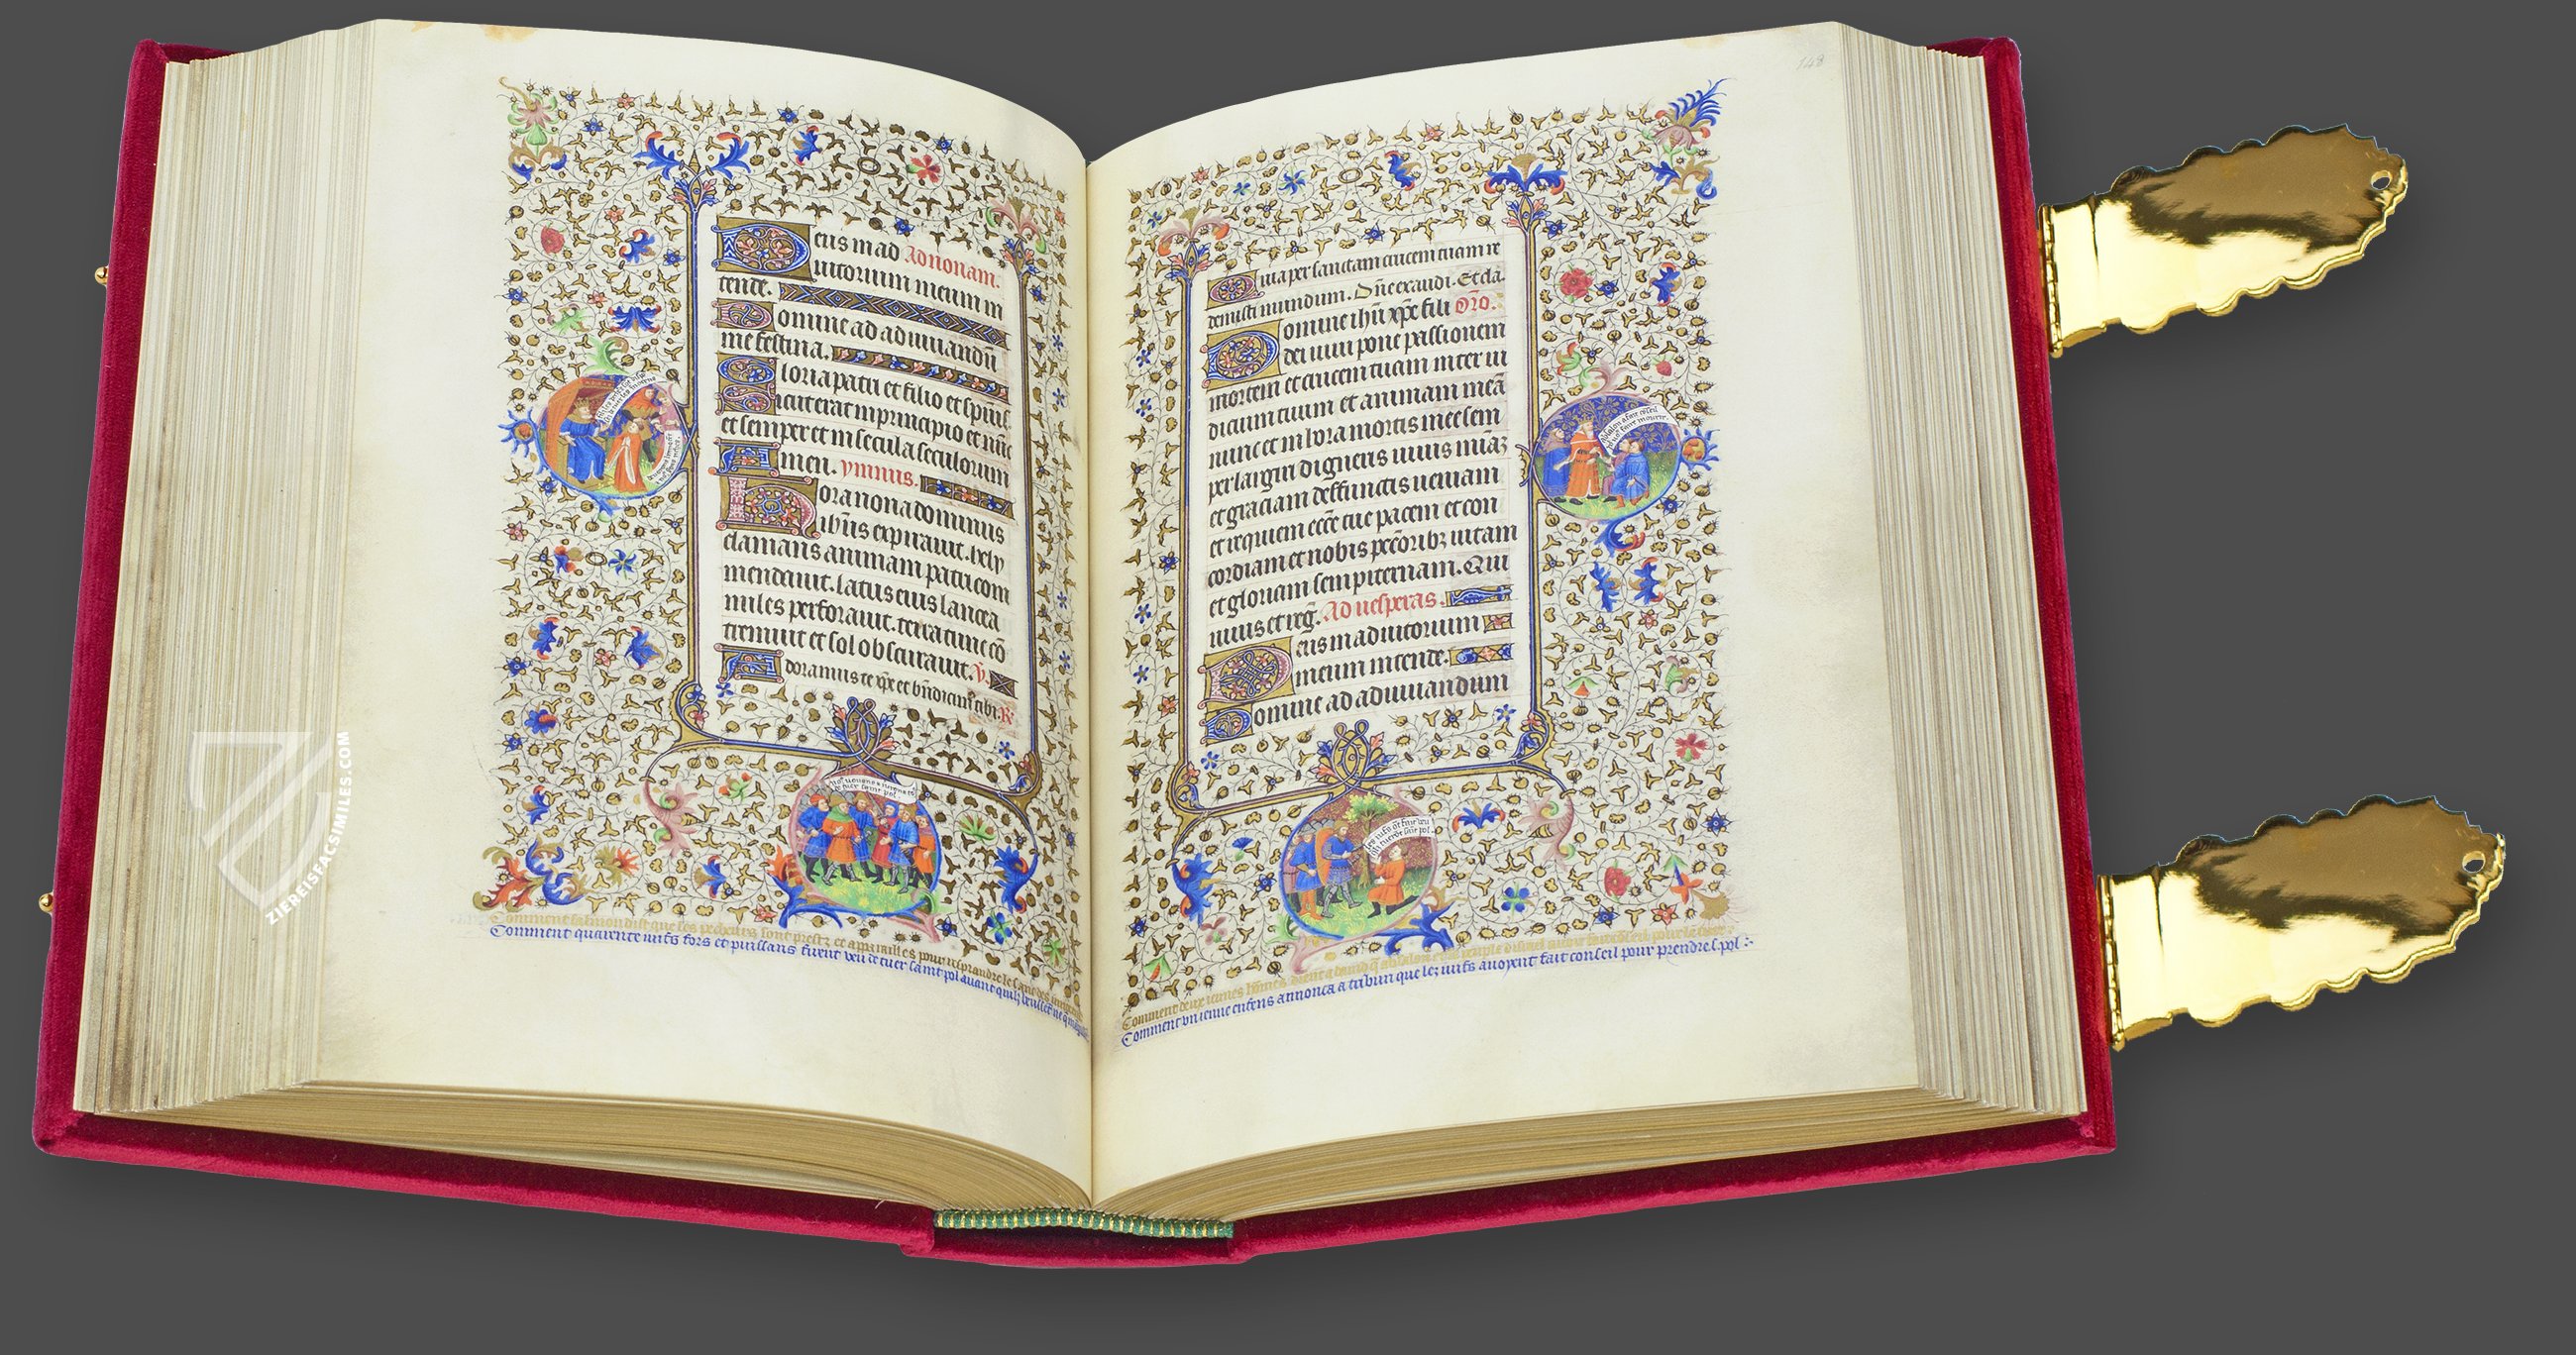 Deus in ad Ad nonam.
iutorium meum in
tende.
Domine ad adiuuandū
me festina.
Gloria patri et filio et spirit
Sicut erat in principio et nūc
et semper et in secula seculorum
Amen. ymnus.
Hora nona dominus
ihūs expirauit. hely
clamans animam patri com
mendauit. latus eius lancea
miles perforauit. terra tunc cō
tremuit et sol obscurauit. V.
Adoramus te xp̄e et bn̄dicim tibi. R
Comment quarente iuifs fors et puissans firent veu de tuer saint pol auant quilz
148
Quia per sanctam crucem tuam re
demisti mundum. Dn̄e exaudi. Et cla.
Domine ihū xp̄e fili Oro.
dei uiui pone passionem
mortem et crucem tuam inter iu
dicium tuum et animam meā
nunc et in hora mortis mee sem
per largiri digneris uiuis mīaz
et graciam deffunctis ueniam
et requiem ecc̄e tue pacem et con
cordiam et nobis pec̄oribz uitam
et gloriam sempiternam. Qui
uiuis et reg̅. Ad uesperas.
Deus in adiutorium
meum intende.
Domine ad adiuuandum
Comment vn ienne enfens annonca a tribun que lez iuifs auoyent fait conseil pour prendre s. pol
ZIEREISFACSIMILES.COM